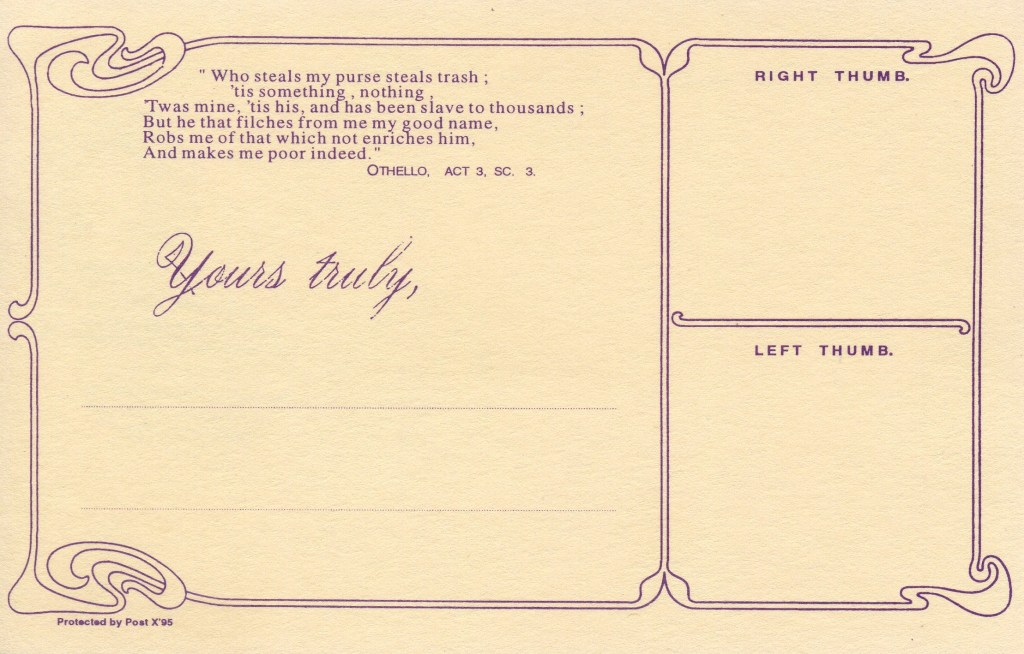 " Who steals my purse steals trash ;
'tis something , nothing ,
'Twas mine, 'tis his, and has been slave to thousands ;
But he that filches from me my good name,
Robs me of that which not enriches him,
And makes me poor indeed."
OTHELLO, ACT 3, SC. 3.
Yours truly,
RIGHT THUMB.
LEFT THUMB.
Protected by Post X'95